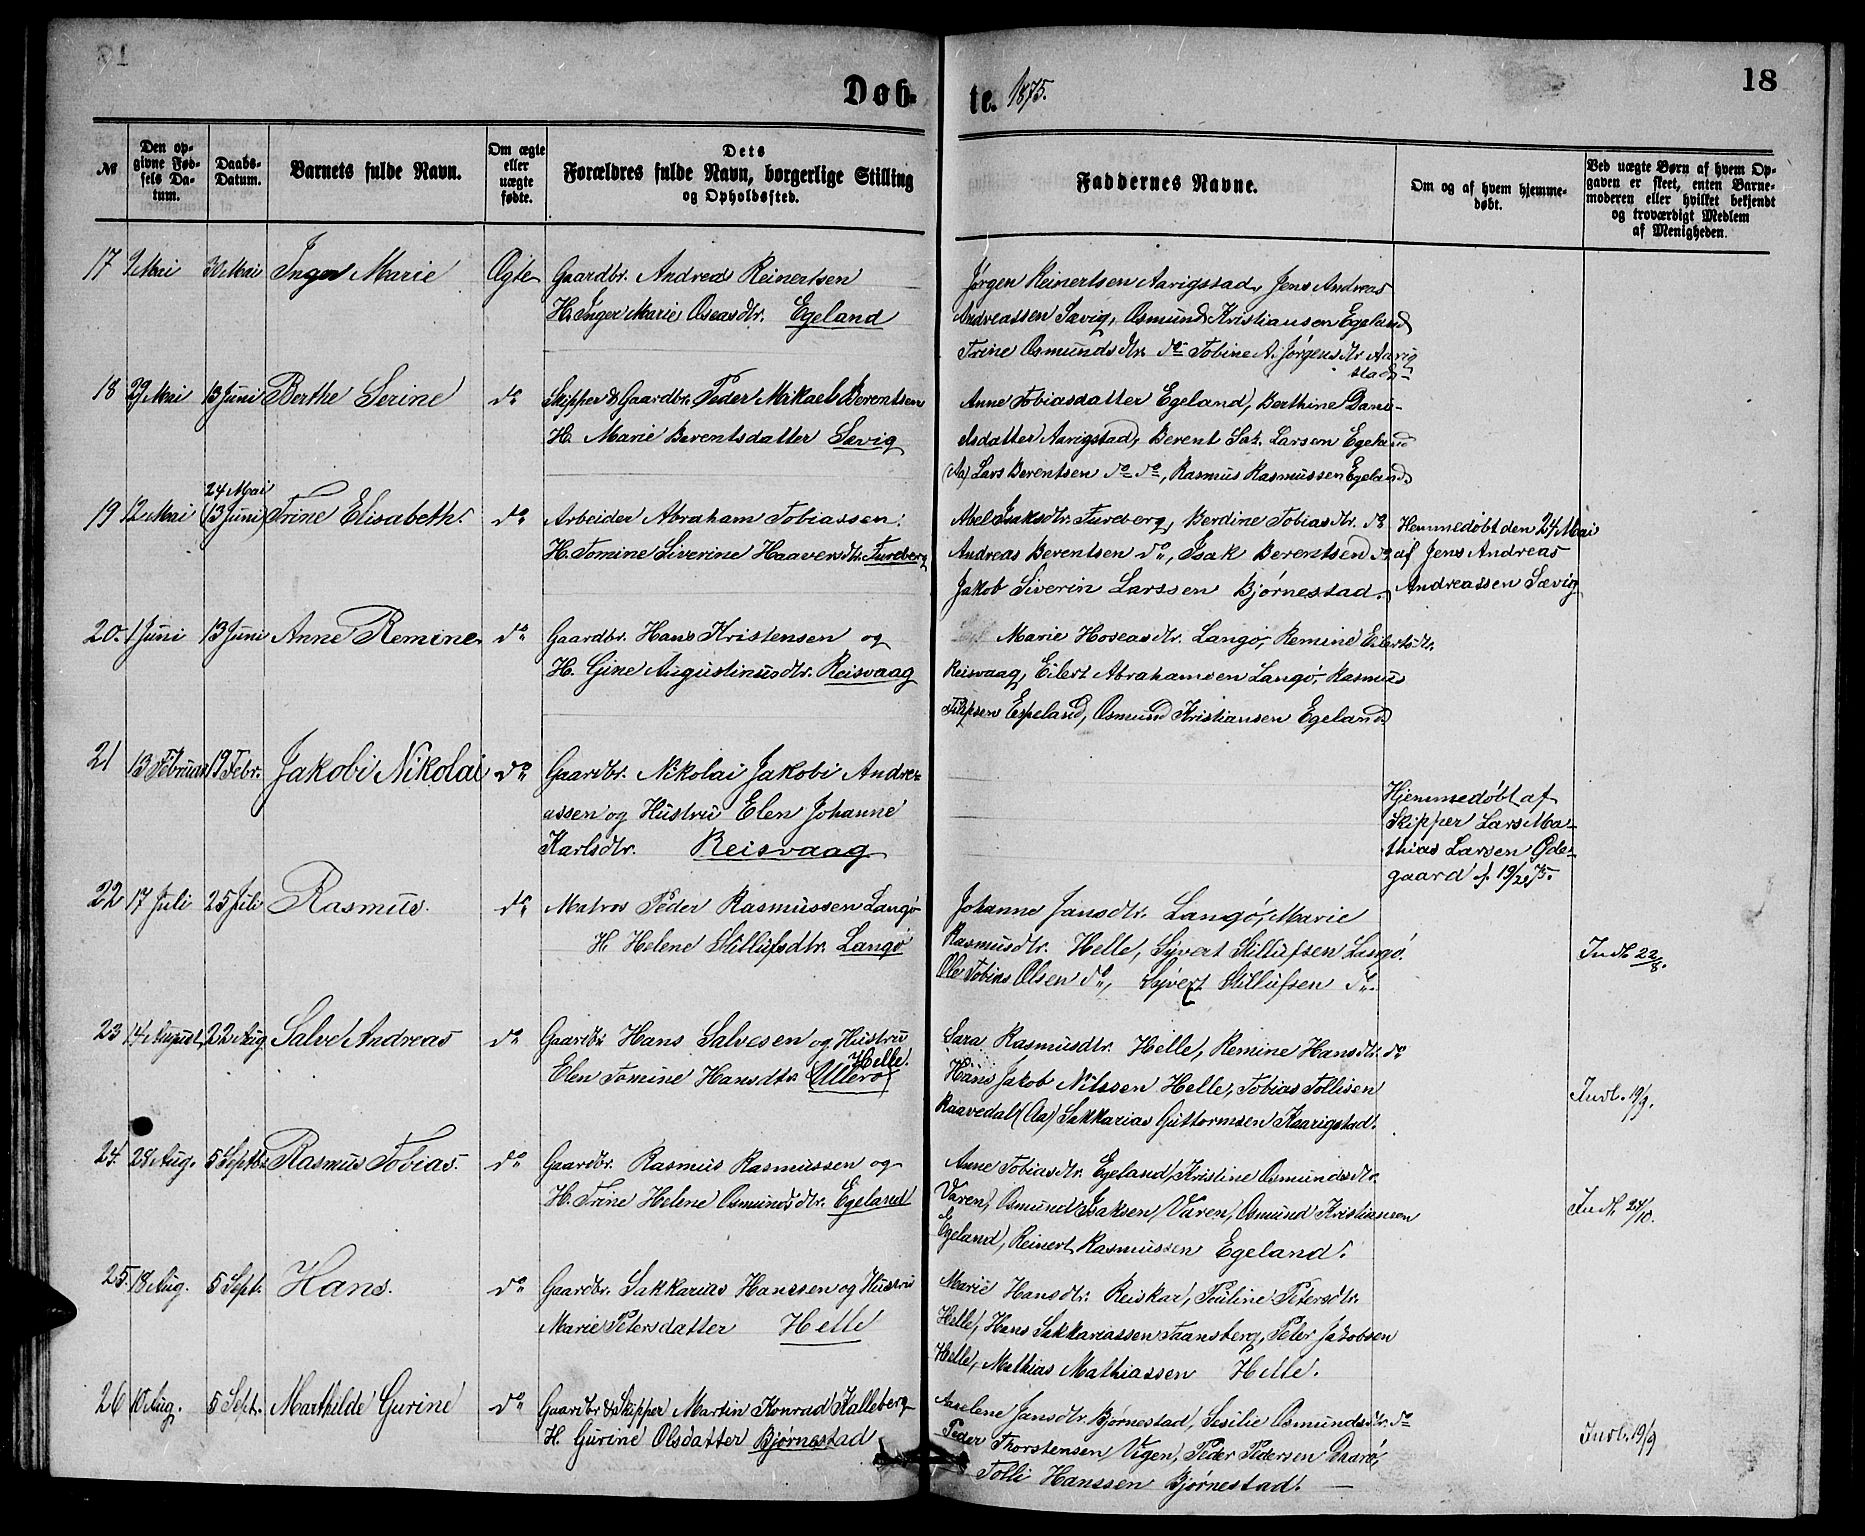 Døb-
te. 1875.
18
№
Den op-
givne Fød-
sels Da-
tum.
Daabs-
Datum.
Barnets fulde Navn.
Om ægte
eller
uægte
fødte.
Dets
Forældres fulde Navn, borgerlige Stilling
og Opholdssted.
Faddernes Navne.
Om og af hvem hjemme-
døbt.
Ved uægte Børn af hvem Op-
gaven er skeet, enten Barne-
moderen eller hvilket bekjendt
og troværdigt Medlem
af Menigheden.
17 9 Mai 30 Mai Inger Marie Ægte Gaardbr. Andreas Reinertsen
H. Inger Marie Oseasdtr. Egeland
Jørgen Reinertsen Aarigstad, Jens Andreas
Andreassen Sævig, Osmund Kristiansen Egeland
Trine Osmundsdtr. do Tobine A. Jørgensdtr Aarig
stad
18 29 Mai 13 Juni Berthe Serine do Skipper & Gaardbr. Peder Mikael Berentsen
H. Marie Berentsdatter Sævig
Anne Tobiasdatter Egeland, Berthine Dani-
elsdatter Aarigstad, Berent Sak. Larsen Egeland
(Aa) Lars Berentsen do do, Rasmus Rasmussen Egeland
24 Mai
19 12 Mai (13 Juni) Trine Elisabeth. do Arbeider Abraham Tobiassen.
H. Tomine Siverine Haavensdtr. Fureberg
Abel Isaksdtr. Fureberg, Berdine Tobiasdtr. do
Andreas Berentsen do, Isak Berentsen do
Jakob Siverin Larssen Bjørnestad.
Hemmedøbt den 24 Mai
af Jens Andreas
Andreassen Sævig
20. 1 Juni 13 Juni Anne Remine. do Gaardbr. Hans Kristensen og
H. Gine Augustinusdtr. Reisvaag
Marie Hoseasdtr. Langø, Remine Eilertsdtr.
Reisvaag, Eilert Abrahamsen Langø, Rasmus
Filipsen Espeland, Osmund Kristiansen Egeland.
21 13 Februar 19 Febr. Jakobi Nikolai do Gaardbr. Nikolai Jakobi Andre-
assen og Hustru Elen Johanne
Karlsdtr. Reisvaag
Hjemmedøbt af
Skipper Lars Ma-
thias Larsen Øde-
gaard d. 19/2 75.
22 17 Juli 25 Juli Rasmus. do Matros Peder Rasmussen Langø
H. Helene Stillufsdtr. Langø
Johanne Jansdtr. Langø, Marie
Rasmusdtr. Helle, Syvert Stillufsen Langø.
Ole Tobias Olsen do, Syvert Stillufsen do.
Indb. 22/8.
23 14 August 22 Aug Salve Andreas do Gaardbr. Hans Salvesen og Hustru
Helle.
Elen Tomine Hansdtr. (Ullerø)
Sara Rasmusdtr. Helle, Remine Hansdtr. do
Hans Jakob Nilssen Helle, Tobias Tollisen
Raavedal (Aa) Sakkarias Guttormsen Kaarigstad.
Indb. 19/9.
24. 28 Aug. 5 Septbr Rasmus Tobias. do Gaardbr. Rasmus Rasmussen og
H. Trine Helene Osmundsdtr. Egeland
Anne Tobiasdtr. Egeland, Kristine Osmundsdtr.
Varen, Osmund Isaksen Varen, Osmund Kristiansen
Egeland, Reinert Rasmussen Egeland.
Indb. 24/10.
25. 18 Aug. 5 Sept. Hans. do Gaardbr. Sakkarias Hanssen og Hustru
Marie Petersdatter Helle
Marie Hansdtr. Reiskar, Pouline Petersdtr.
Helle, Hans Sakkariassen Faansberg, Peter Jakobsen
Helle, Mathias Mathiassen Helle.
26 10 Aug. 5 Sept. Marthilde Gurine do Gaardbr & Skipper Martin Konrad Kalleberg
H. Gurine Olsdatter Bjørnestad
Aaselene Jansdtr. Bjørnestad, Sesilie Osmundsdtr. do
Peder Thorstensen Vigen, Peder Pedersen Daarø,
Tolli Hanssen Bjørnestad.
Indb. 19/9